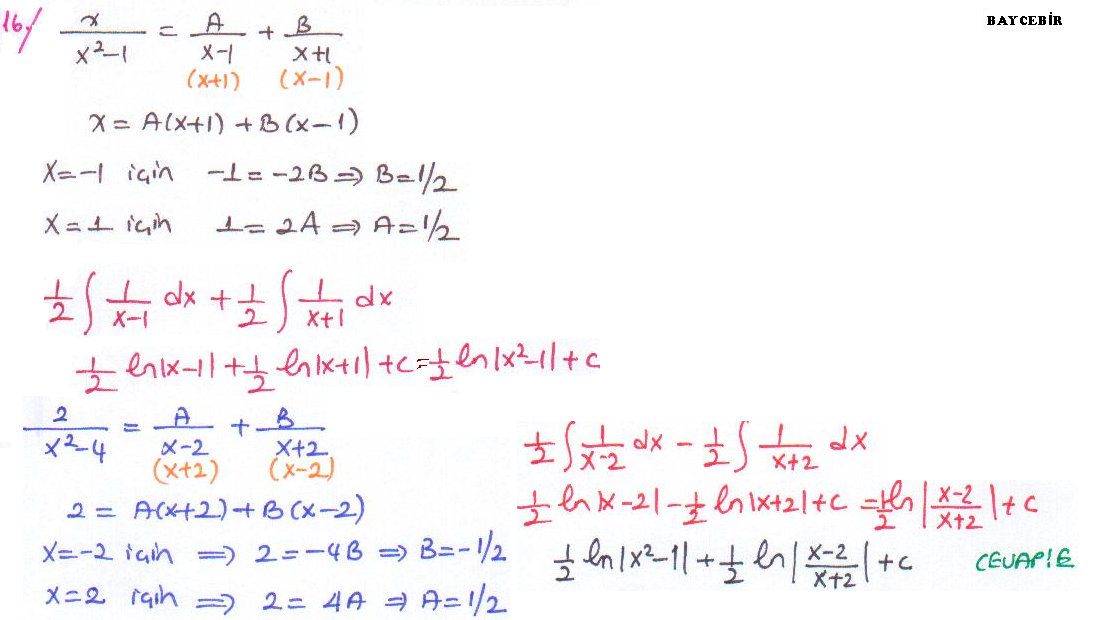 BAYCEBİR
16/ x/(x²-1) = A/(x-1) + B/(x+1)
(x+1) (x-1)
x = A(x+1) + B(x-1)
x=-1 için -1 = -2B ⇒ B=1/2
x=1 için 1 = 2A ⇒ A=1/2
1/2 ∫ 1/(x-1) dx + 1/2 ∫ 1/(x+1) dx
1/2 ln|x-1| + 1/2 ln|x+1| + c = 1/2 ln|x²-1| + c
2/(x²-4) = A/(x-2) + B/(x+2)
(x+2) (x-2)
2 = A(x+2) + B(x-2)
x=-2 için ⇒ 2=-4B ⇒ B=-1/2
x=2 için ⇒ 2= 4A ⇒ A=1/2
1/2 ∫ 1/(x-2) dx - 1/2 ∫ 1/(x+2) dx
1/2 ln|x-2| - 1/2 ln|x+2| + c = 1/2 ln|(x-2)/(x+2)| + c
1/2 ln|x²-1| + 1/2 ln|(x-2)/(x+2)| + c CEVAP:E